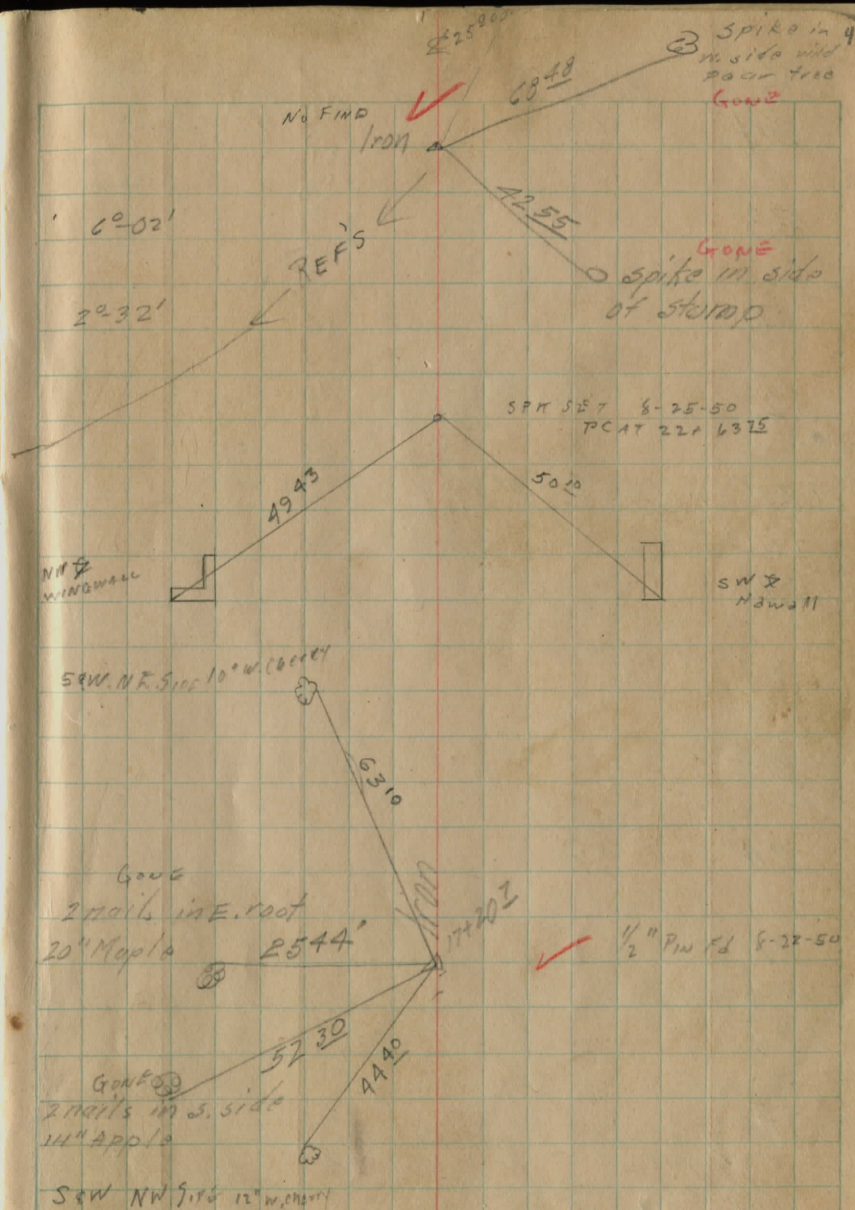 Spike in
W. side wild
pear tree
GONE
4
68 48
No FIND
Iron
42 55
6°-02'
REF'S
GONE
spike in side
of stump
2°-32'
SPK SET 8-25-50
PC AT 22+ 63 25
49 43
50 10
WINGWALL
SW
Hdwall
S&W. N.E. Side 10" W. Cherry
63 10
GONE
2 nails in E. root
20" Maple
25 44'
Iron
1/2" PIN Fd 8-28-50
52 30
44 40
GONE
2 nails in S. side
14" Apple
S&W NW Side 12" W. Cherry